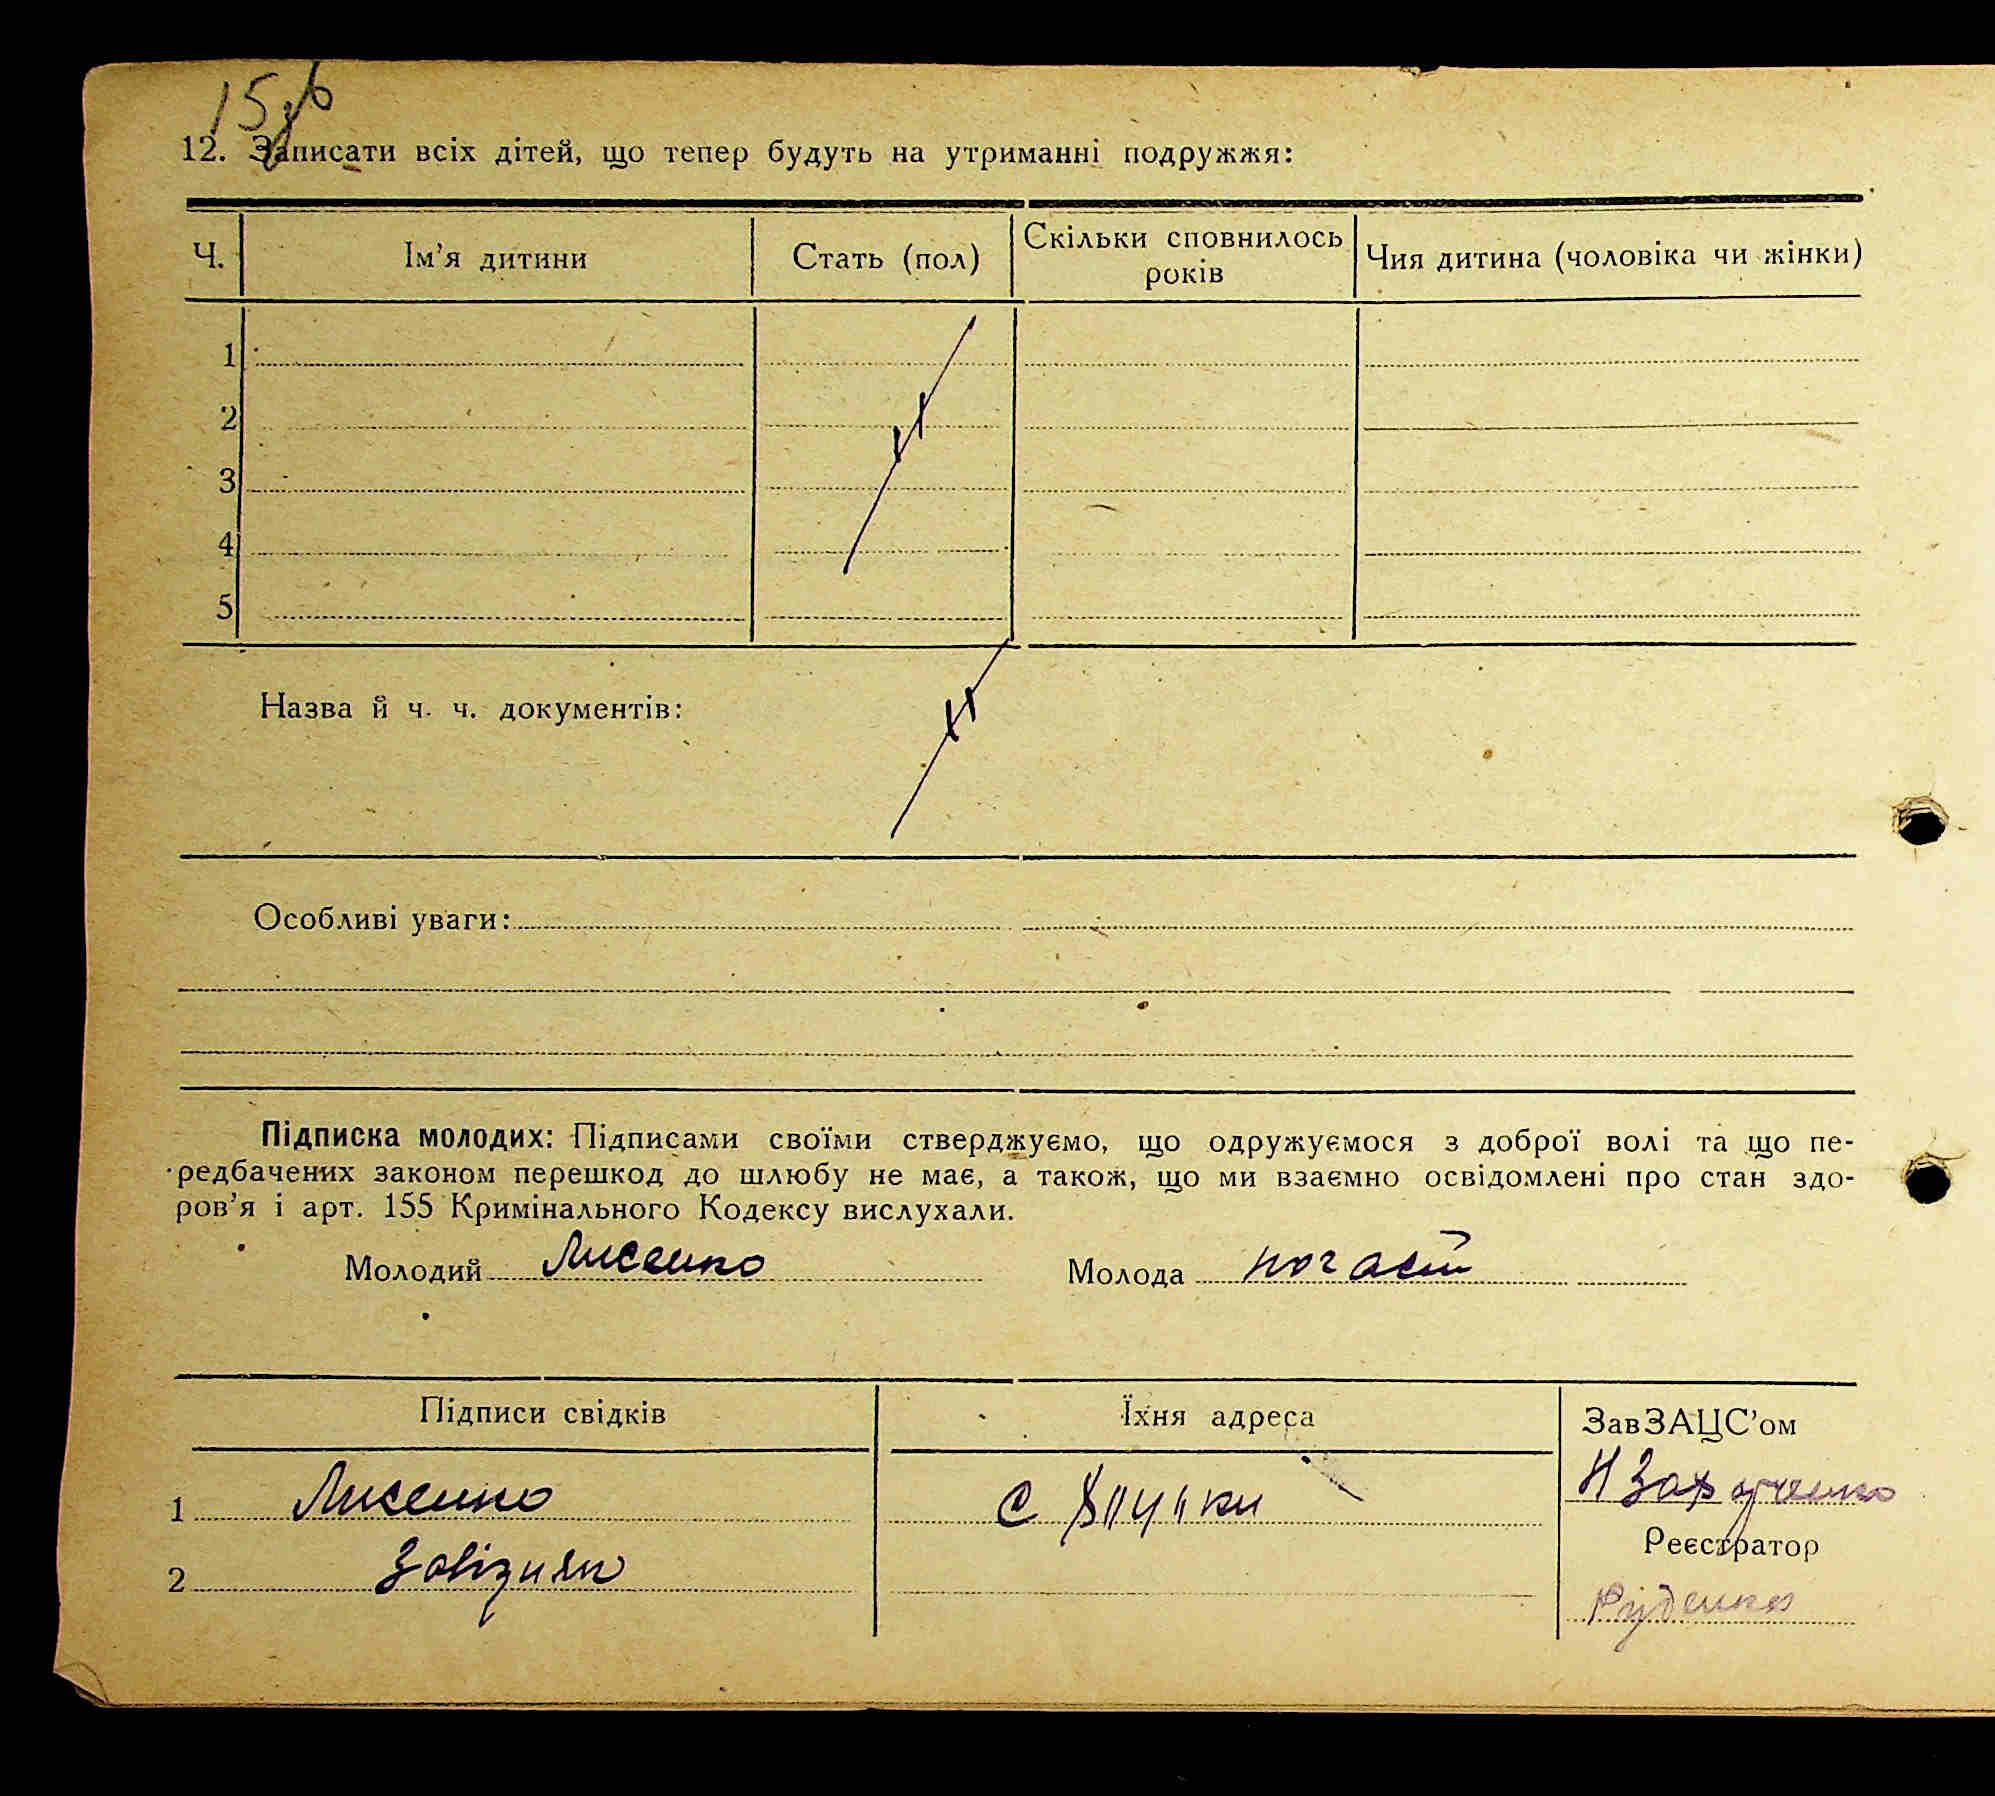 12. Записати всіх дітей, що тепер будуть на утриманні подружжя:
Ч. Ім'я дитини Стать (пол) Скільки сповнилось років Чия дитина (чоловіка чи жінки)
1
2
3
4
5
Назва й ч. ч. документів:
Особливі уваги:
Підписка молодих: Підписами своїми стверджуємо, що одружуємося з доброї волі та що пе-
редбачених законом перешкод до шлюбу не має, а також, що ми взаємно освідомлені про стан здо-
ров'я і арт. 155 Кримінального Кодексу вислухали.
Молодий Лисенко Молода
Підписи свідків Їхня адреса ЗавЗАЦС'ом
1 Лисенко С Н Захарченко
Реєстратор
2 Завізняк Руденко